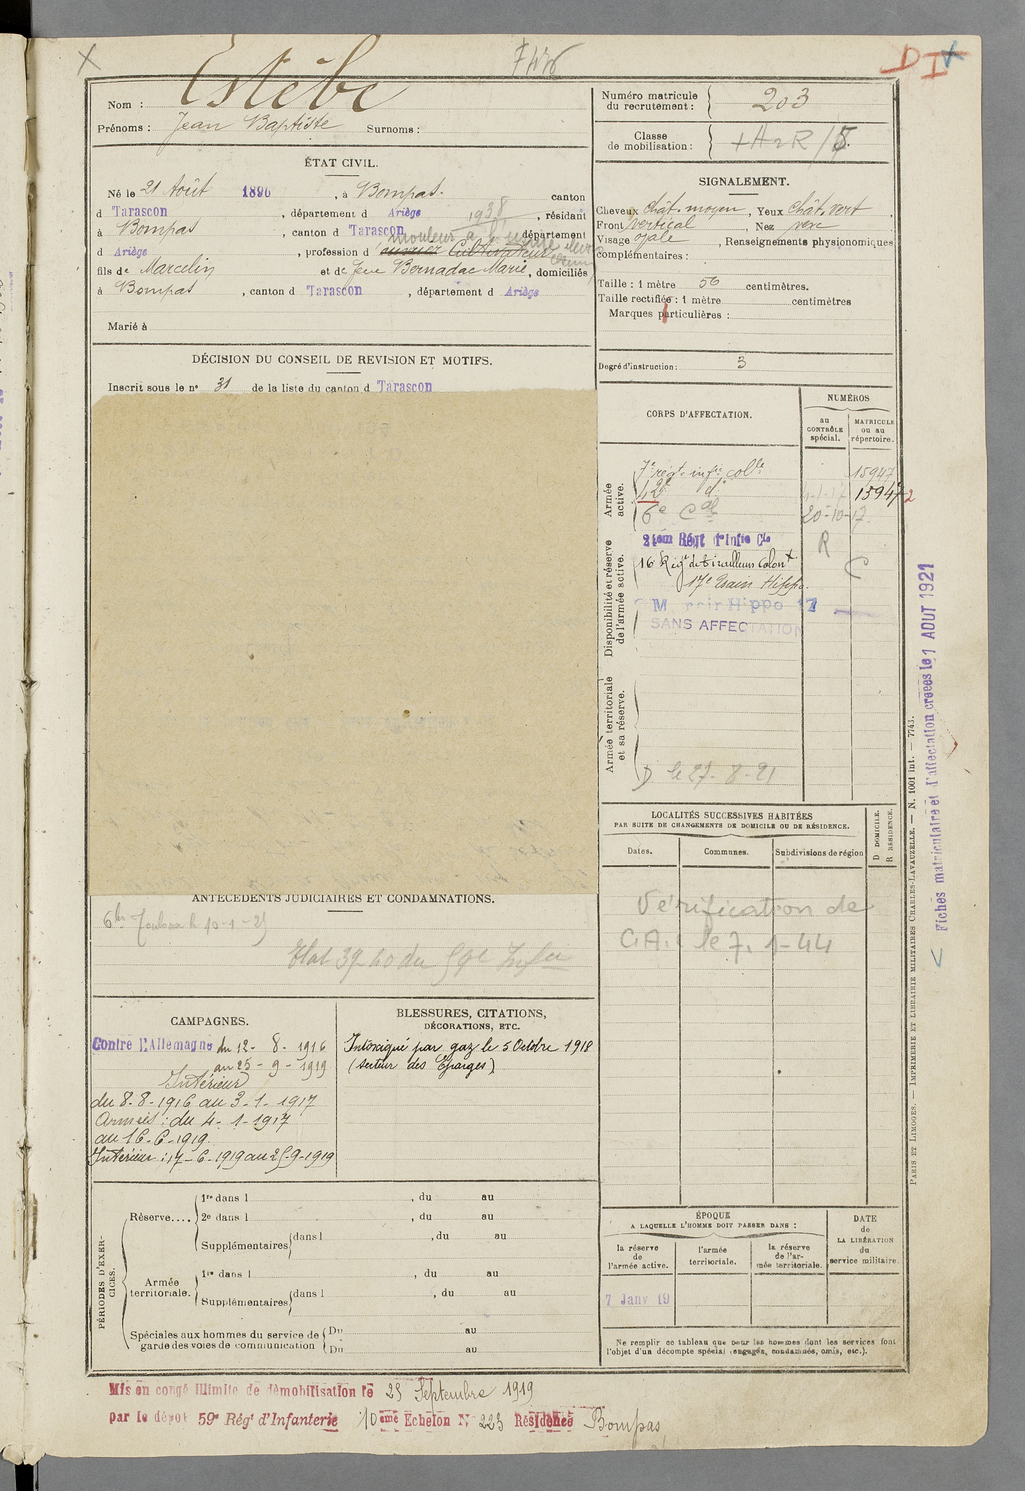 Estèbe
Nom :
Prénoms : Jean Baptiste Surnoms :
ÉTAT CIVIL.
Né le 21 Août 1896, à Bompas. canton
d Tarascon, département d Ariège, résidant 1938
à Bompas, canton d Tarascon, département
mouleur à l'usine
d Ariège, profession d Cultivateur
fils de Marcelin et de feue Bernadac Marie, domiciliés
à Bompas, canton d Tarascon, département d Ariège
Marié à
DÉCISION DU CONSEIL DE REVISION ET MOTIFS.
Inscrit sous le n° 31 de la liste du canton d Tarascon
ANTÉCÉDENTS JUDICIAIRES ET CONDAMNATIONS.
Etat 39-40 du
CAMPAGNES.
Contre l'Allemagne du 12-8-1916
au 25-9-1919
Intérieur
du 8-8-1916 au 3-1-1917
Armées : du 4-1-1917
au 16-6-1919
Intérieur : 17-6-1919 au 25-9-1919
BLESSURES, CITATIONS,
DÉCORATIONS, ETC.
Intoxiqué par gaz le 5 Octobre 1918
(secteur des Eparges)
PÉRIODES D'EXERCICES.
Réserve....
1re dans l , du au
2e dans l , du au
Supplémentaires dans l , du au
Armée territoriale.
1re dans l , du au
Supplémentaires dans l , du au
Spéciales aux hommes du service de garde des voies de communication
Du au
Du au
Mis en congé illimité de démobilisation le 25 Septembre 1919
par le dépôt 59e Régt d'Infanterie 10ème Echelon N° 223 Résidence Bompas
Numéro matricule
du recrutement : 203
Classe
de mobilisation :
SIGNALEMENT.
Cheveux chât. moyen, Yeux chât. vert,
Front vertical, Nez
Visage ovale, Renseignements physionomiques
complémentaires :
Taille : 1 mètre 56 centimètres.
Taille rectifiée : 1 mètre centimètres
Marques particulières :
Degré d'instruction : 3
CORPS D'AFFECTATION.
NUMÉROS
au CONTRÔLE spécial.
MATRICULE ou au répertoire.
Armée active.
7e régt. infie colle 15947
42e do 15947
6e Cal 20-10-17
Disponibilité et réserve de l'armée active.
21ème Régt d'Infie Cle R
16 Régt de Tirailleurs Colonx
17e Train Hippo.
SANS AFFECTATION
Armée territoriale et sa réserve.
D le 27-8-21
LOCALITÉS SUCCESSIVES HABITÉES
PAR SUITE DE CHANGEMENTS DE DOMICILE OU DE RÉSIDENCE.
Dates. Communes. Subdivisions de région
D DOMICILE.
R RÉSIDENCE.
Vérification de
C.A. le 7.1-44
ÉPOQUE
A LAQUELLE L'HOMME DOIT PASSER DANS :
la réserve de l'armée active.
l'armée territoriale.
la réserve de l'armée territoriale.
DATE
de
LA LIBÉRATION
du
service militaire.
7 Janv 19
Ne remplir ce tableau que pour les hommes dont les services font
l'objet d'un décompte spécial (engagés, condamnés, omis, etc.).
PARIS ET LIMOGES. — IMPRIMERIE ET LIBRAIRIE MILITAIRES CHARLES-LAVAUZELLE. — N. 1001 int. — 7743.
Fiches matriculaire et d'affectation créées le 1 AOUT 1921